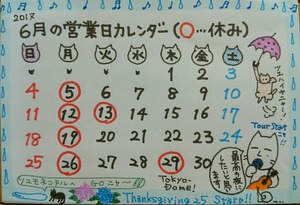 2017
6月の営業日カレンダー(○…休み)
日 月 火 水 木 金 土
1 2 3
4 5 6 7 8 9 10
11 12 13 14 15 16 17
18 19 20 21 22 23 24
25 26 27 28 29 30
Tour Start
最高の夜に
したいと思い
ます!
Tokyo-
Dome!
GO ニャー
Thanksgiving 25 Start!!